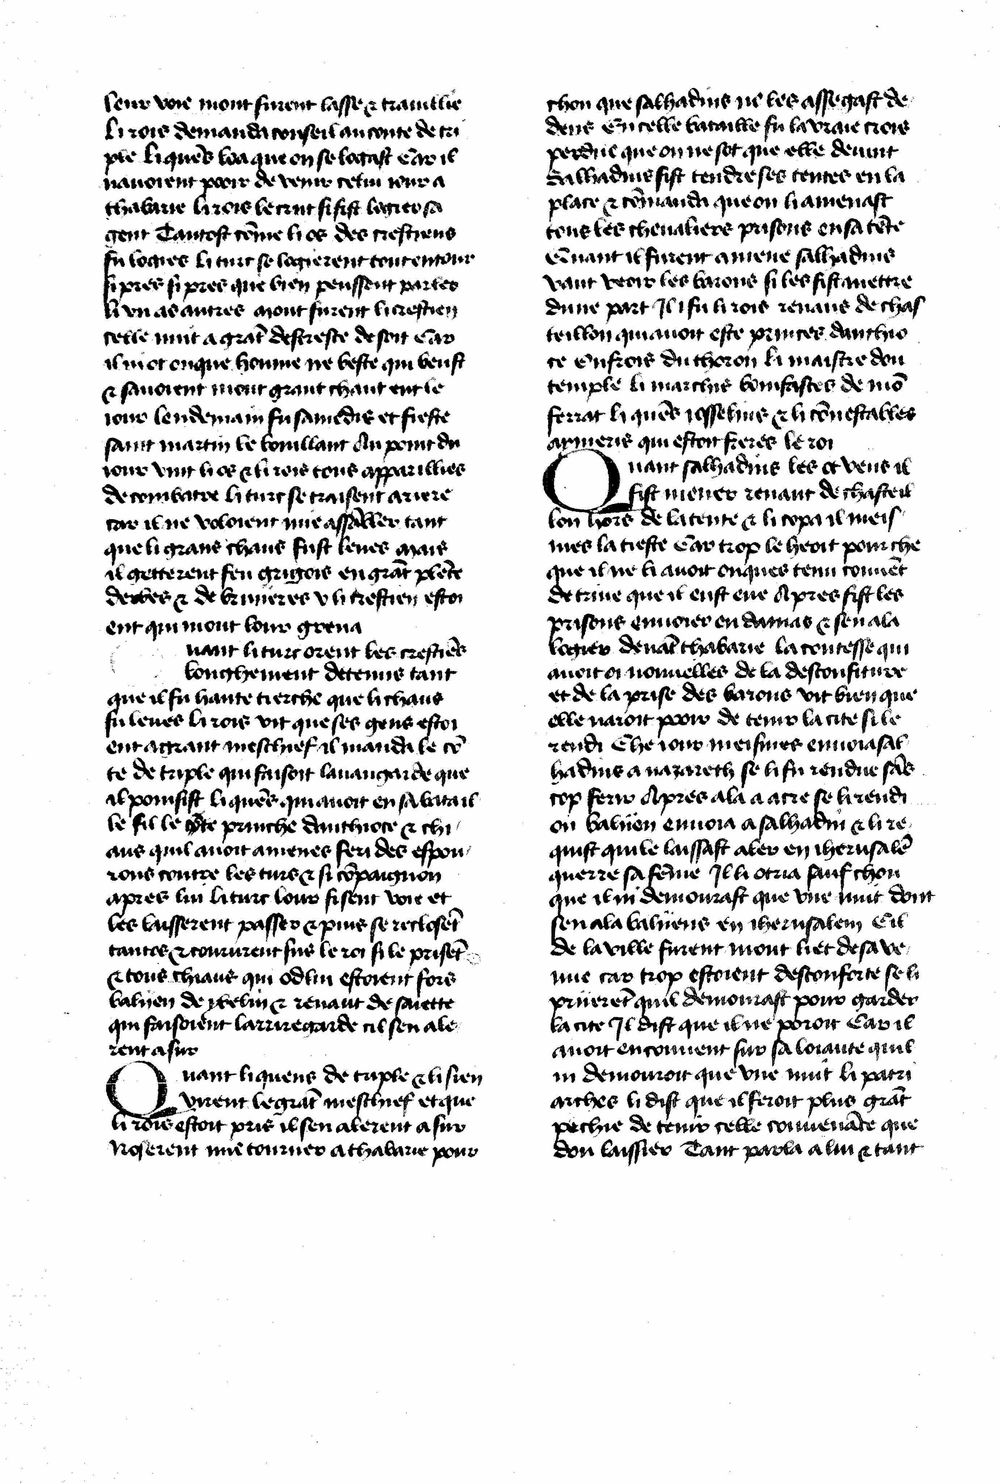 leur voie mont furent lasse & trauillie
Li rois demanda conseil au conte de tri
ple Li quēs loa que on se logast Car il
nauoient pooir de venir celui iour a
thabarie li rois le crut si fist logier sa
gent Tantost cōme li os des crestiens
fu logies li turc se logierent tout entour
si pres si pres que bien peussent parler
li vn as autres mont furent li crestien
celle nuit a grāt destreste de soit Car
il niot onque homme ne beste qui beust
& sauoient mont grant chaut ent le
iour lendemain fu samedis et fieste
saint martin le boullant Au point du
iour vint li os & li rois tous apparillies
de combatre li turc se traisent ariere
car il ne voloient mie assaller tant
que li grans chaus fust leues mais
il getterent feu grigois en grāt plēte
derbes & de bruieres v li crestien estoi
ent qui mont lour greua
uant li turc orent les crestiēs
longhement detenus tant
que il fu haute tierche que li chaus
fu leues li rois vit que ses gens estoi
ent a grant meschief il manda le cō
te de triple qui faisoit lauangarde que
il poinsist li quēs qui auoit en sa batail
le fil le prinche danthioce & chi
aus quil auoit amenes feri des espou
rons contre les turs & si cōpaignon
apres lui li turc lour fisent voie et
les laisserent passer & puis se recloset̄
tantos & coururent sus le roi si le priset̄
& tous chiaus qui od lui estoient fors
balyen de ybelin & renaut de saiette
qui faisoient larriregarde cil sen ale
rent a sur
Quant li quens de triple & li sien
virent le grāt meschief et que
li rois estoit pris il sen alerent a sur
Noserent mie tourner a thabarie pour
chou que salhadins ne les assegast de
dens En celle bataille fu la vraie crois
perdue que on ne sot que elle deuint
Salhadins fist tendre ses tentes en la
place & cōmanda que on li amenast
tous les cheualiers prisons en sa tēte
Quant il furent amene salhadins
vaut veoir les barons si les fist mettre
dune part Il i fu li rois renaus de chas
teillon qui auoit este princes danthio
ce Enfrois du thoron li maistre dou
temple li marchis bonifasces de mō
ferrat li quēs iosselins & li cōnestables
aymeris qui estoit freres le roi
Quant salhadins les ot veus il
fist mener renaut de chasteil
lon hors de la tente & li copa il meis
mes la tieste Car trop le heoit pour che
que il ne li auoit onques tenu couuēt
de triue que il eust eue Apres fist les
prisons enuoier en damas & sen ala
logier deuāt thabarie la contesse qui
auoit oi nouuelles de la desconfiture
et de la prise des barons vit bien que
elle naroit pooir de tenir la cite si le
rendi Che iour meismes enuoia sal
hadins a nazareth se li fu rendue sās
cop ferir Apres ala a acre se li rendi
on balyen enuoia a salhadin & li re
quist qui le laissast aler en iherusalē
querre sa fēme Il li otria sauf chou
que il ni demourast que vne nuit dont
sen ala balyens en iherusalem Cil
de la ville furent mont liet de sa ve
nue car trop estoient desconforte se li
pryeret̄ quil demourast pour garder
la cite Il dist que il ne poroit Car il
auoit en couuent sur sa loiaute quil
ni demouroit que vne nuit li patri
arches li dist que il feroit plus grāt
pechie de tenir celle conuenāce que
dou laissier Tant parla a lui & tant